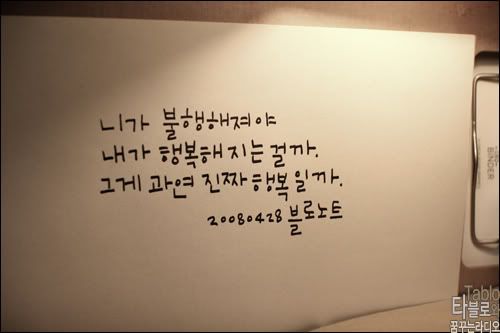 니가 불행해져야
내가 행복해지는걸까.
그게 과연 진짜 행복일까.
20080428 블로노트
BINDER
Tablo
타블로
꿈꾸는라디오